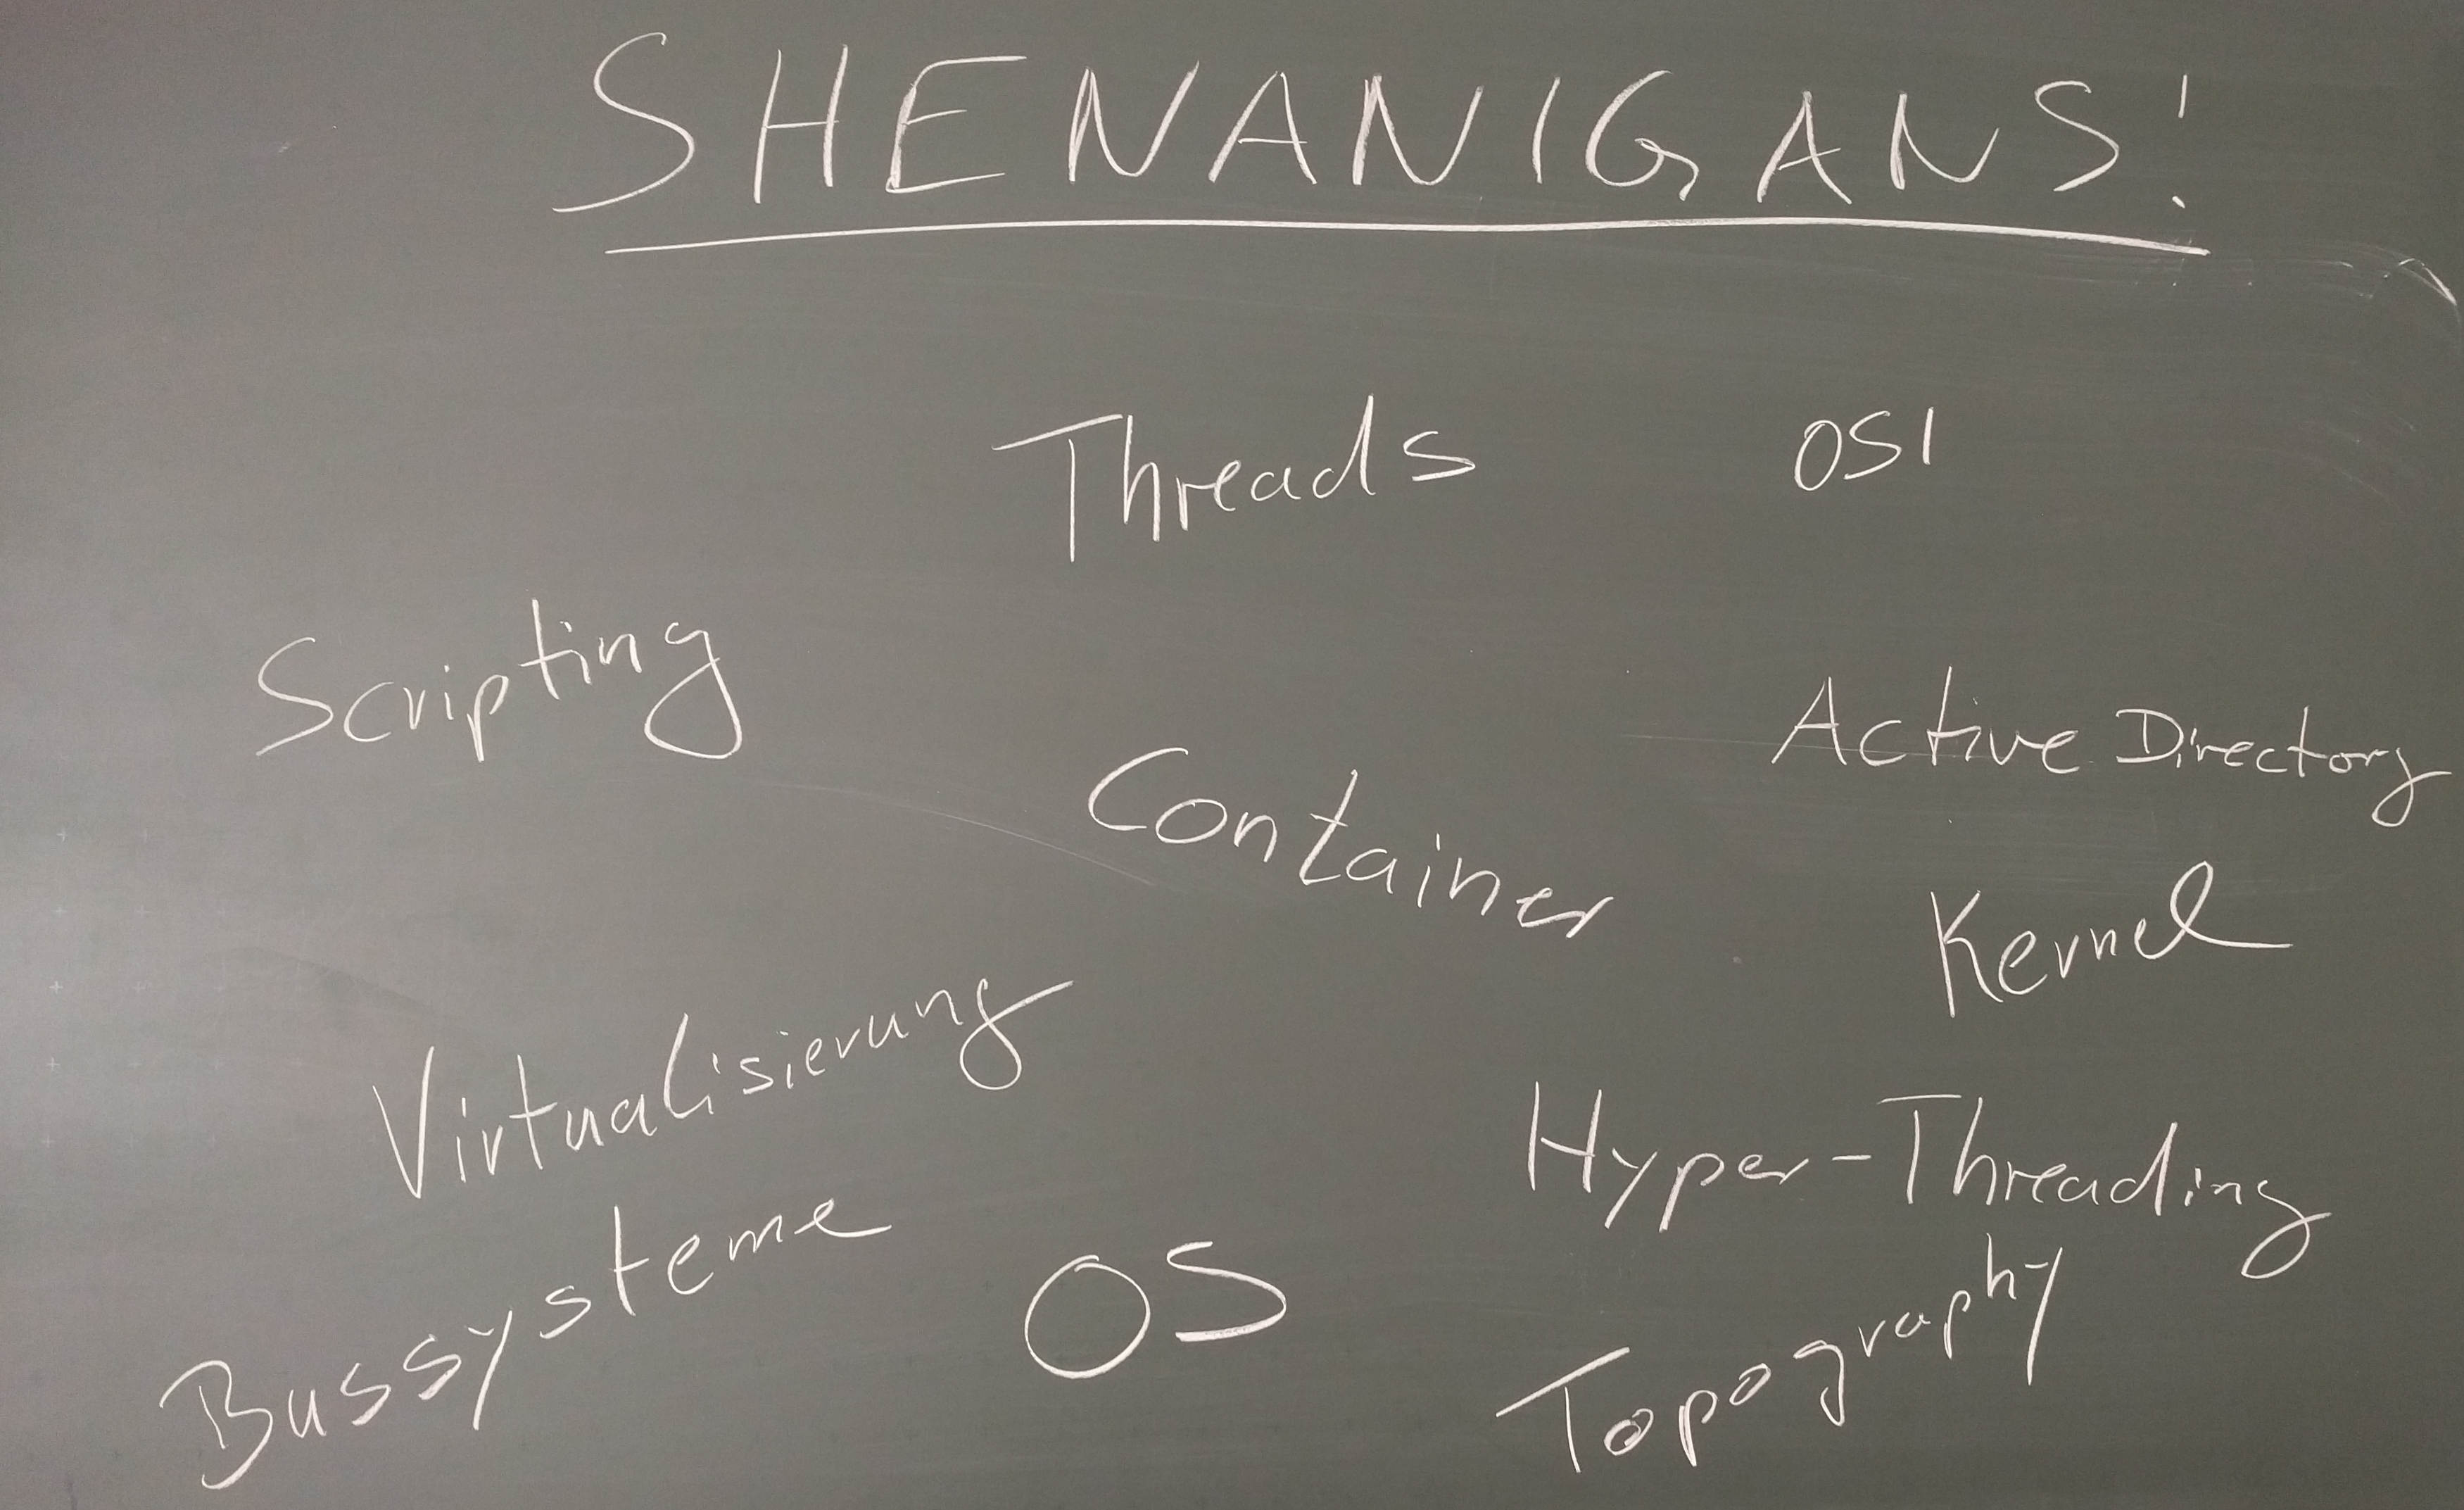 SHENANIGANS!
Threads
OSI
Scripting
Active Directory
Container
Kernel
Virtualisierung
Hyper-Threading
Bussysteme
OS
Topography